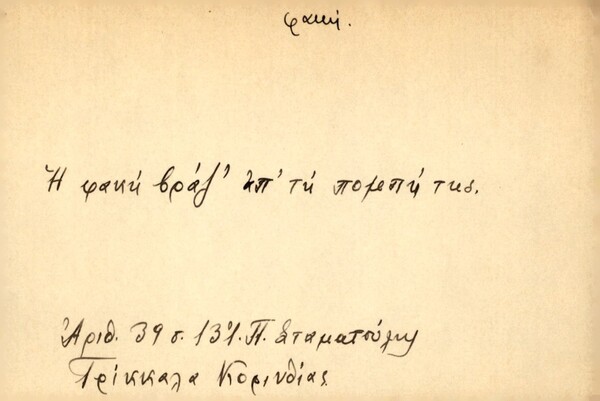 φακή.
Ἡ φακή βράζ' ἀπ' τή πομπή της.
Ἀριθ. 39 σ. 131. Π. Σταματούλη
Τρίκκαλα Κορινθίας